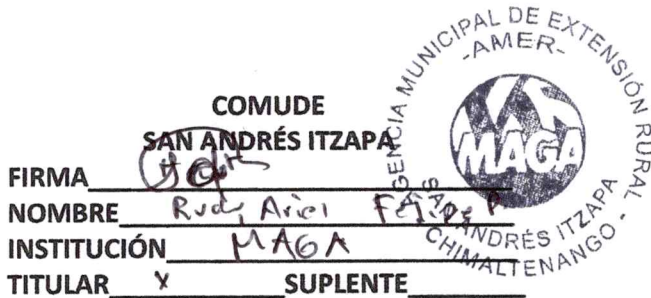 COMUDE
SAN ANDRÉS ITZAPA
FIRMA
NOMBRE Rudy Ariel Felipe P
INSTITUCIÓN MAGA
TITULAR x SUPLENTE
AGENCIA MUNICIPAL DE EXTENSIÓN RURAL -
-AMER-
MAGA
SAN ANDRÉS ITZAPA
CHIMALTENANGO